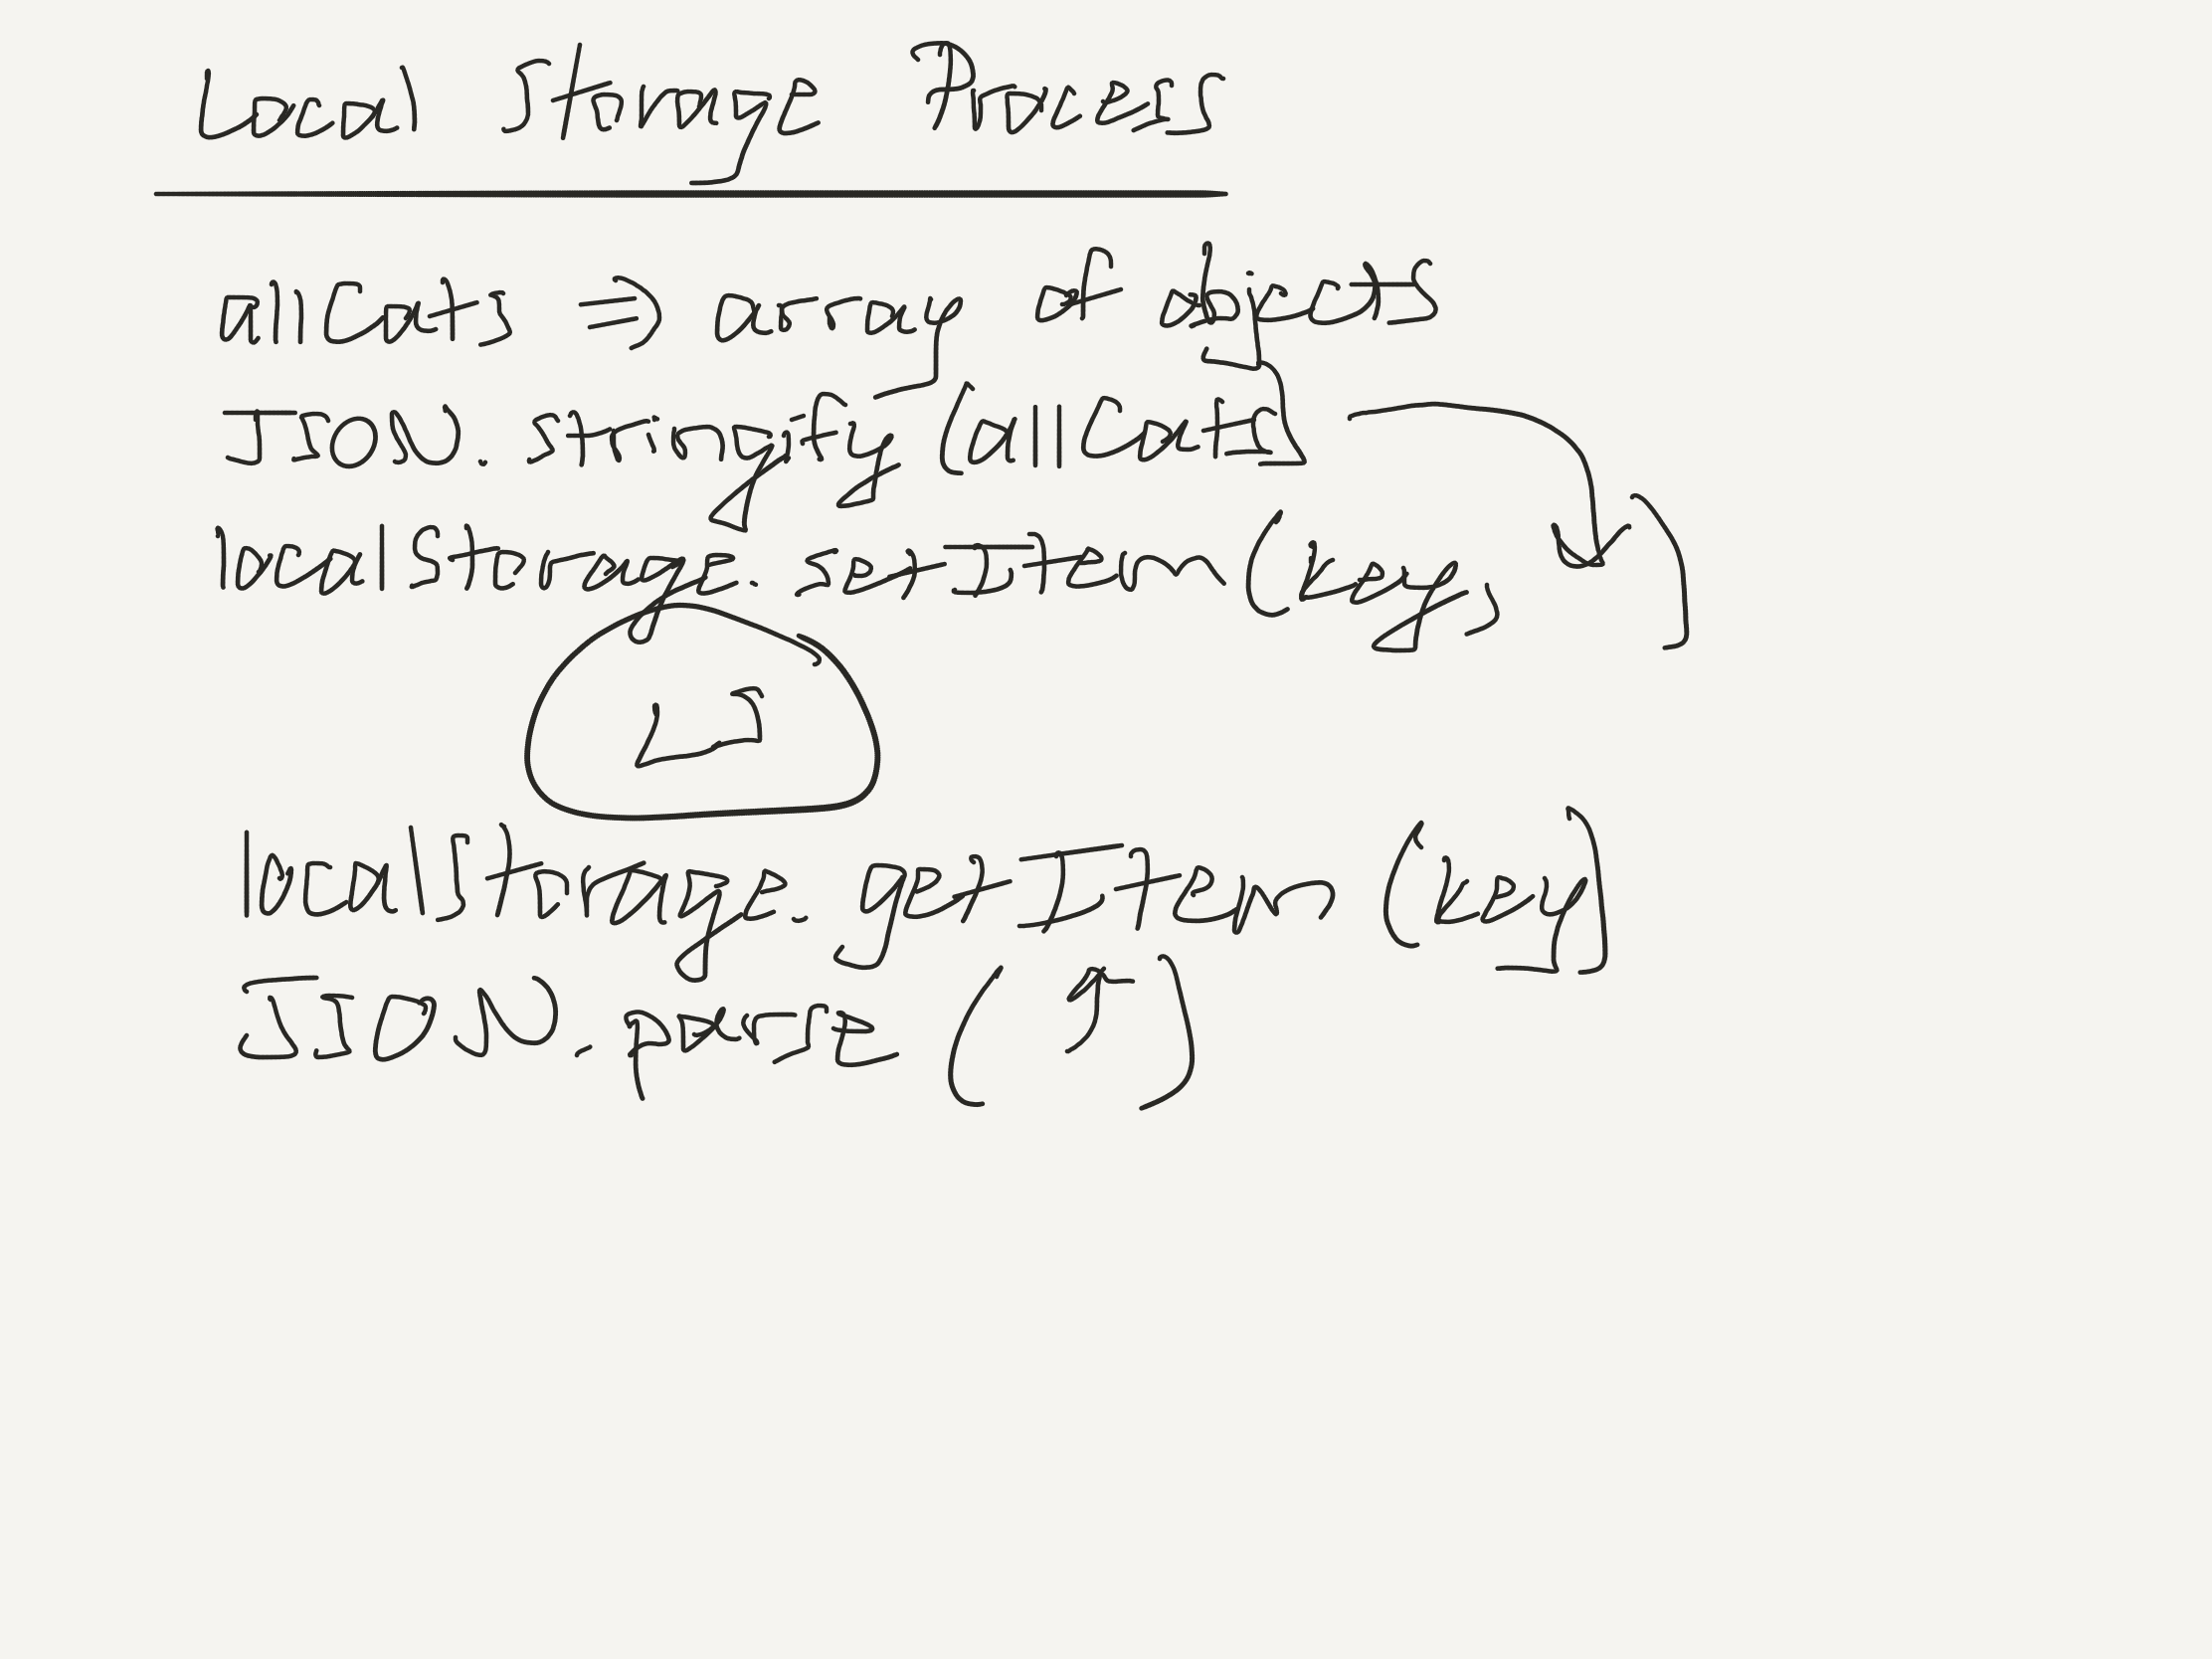 Local Storage Process
allCats => array of objects
JSON.stringify (allCats)
localStorage.setItem(key, )
localStorage.getItem (key)
JSON.parse ( )